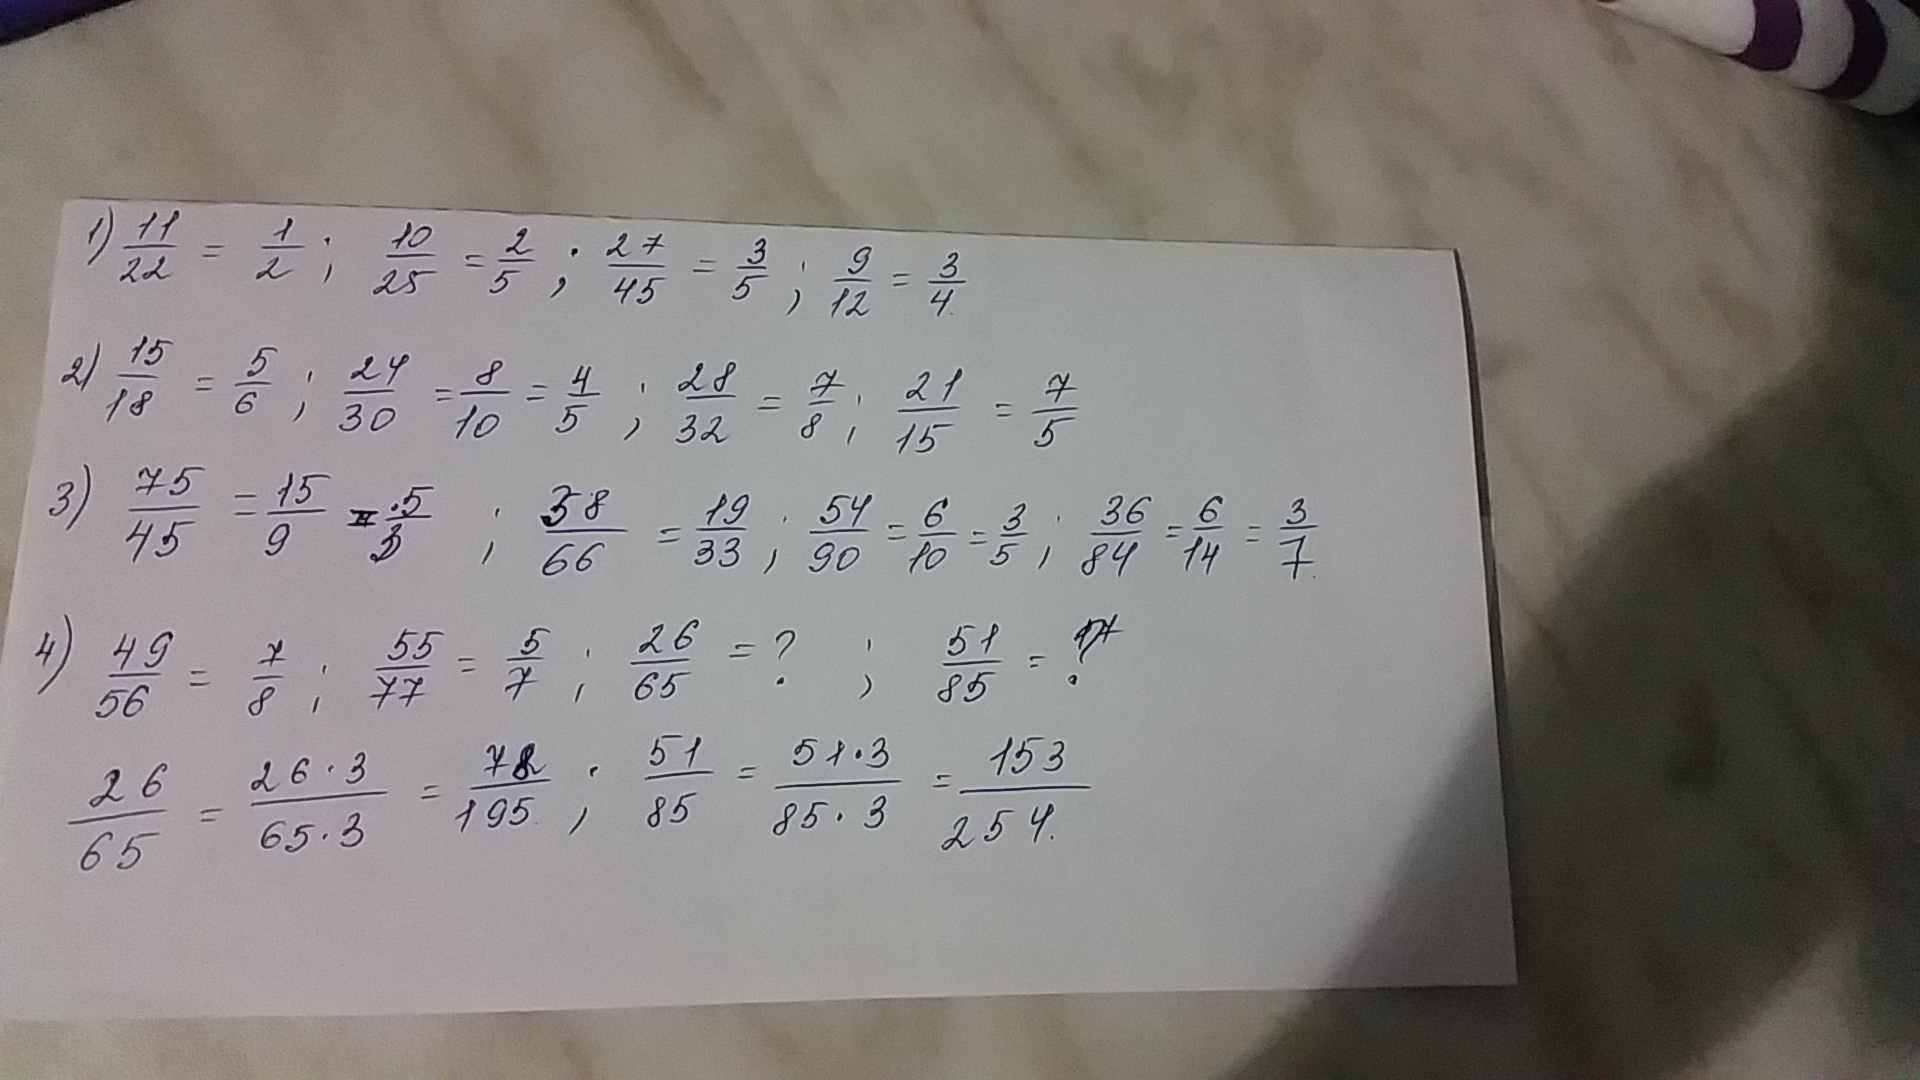 1) 11/22 = 1/2 ; 10/25 = 2/5 ; 27/45 = 3/5 ; 9/12 = 3/4.
2) 15/18 = 5/6 ; 24/30 = 8/10 = 4/5 ; 28/32 = 7/8 ; 21/15 = 7/5
3) 75/45 = 15/9 = 5/3 ; 38/66 = 19/33 ; 54/90 = 6/10 = 3/5 ; 36/84 = 6/14 = 3/7.
4) 49/56 = 7/8 ; 55/77 = 5/7 ; 26/65 = ? ; 51/85 = ?
26/65 = 26·3/65·3 = 78/195. ; 51/85 = 51·3/85·3 = 153/254.